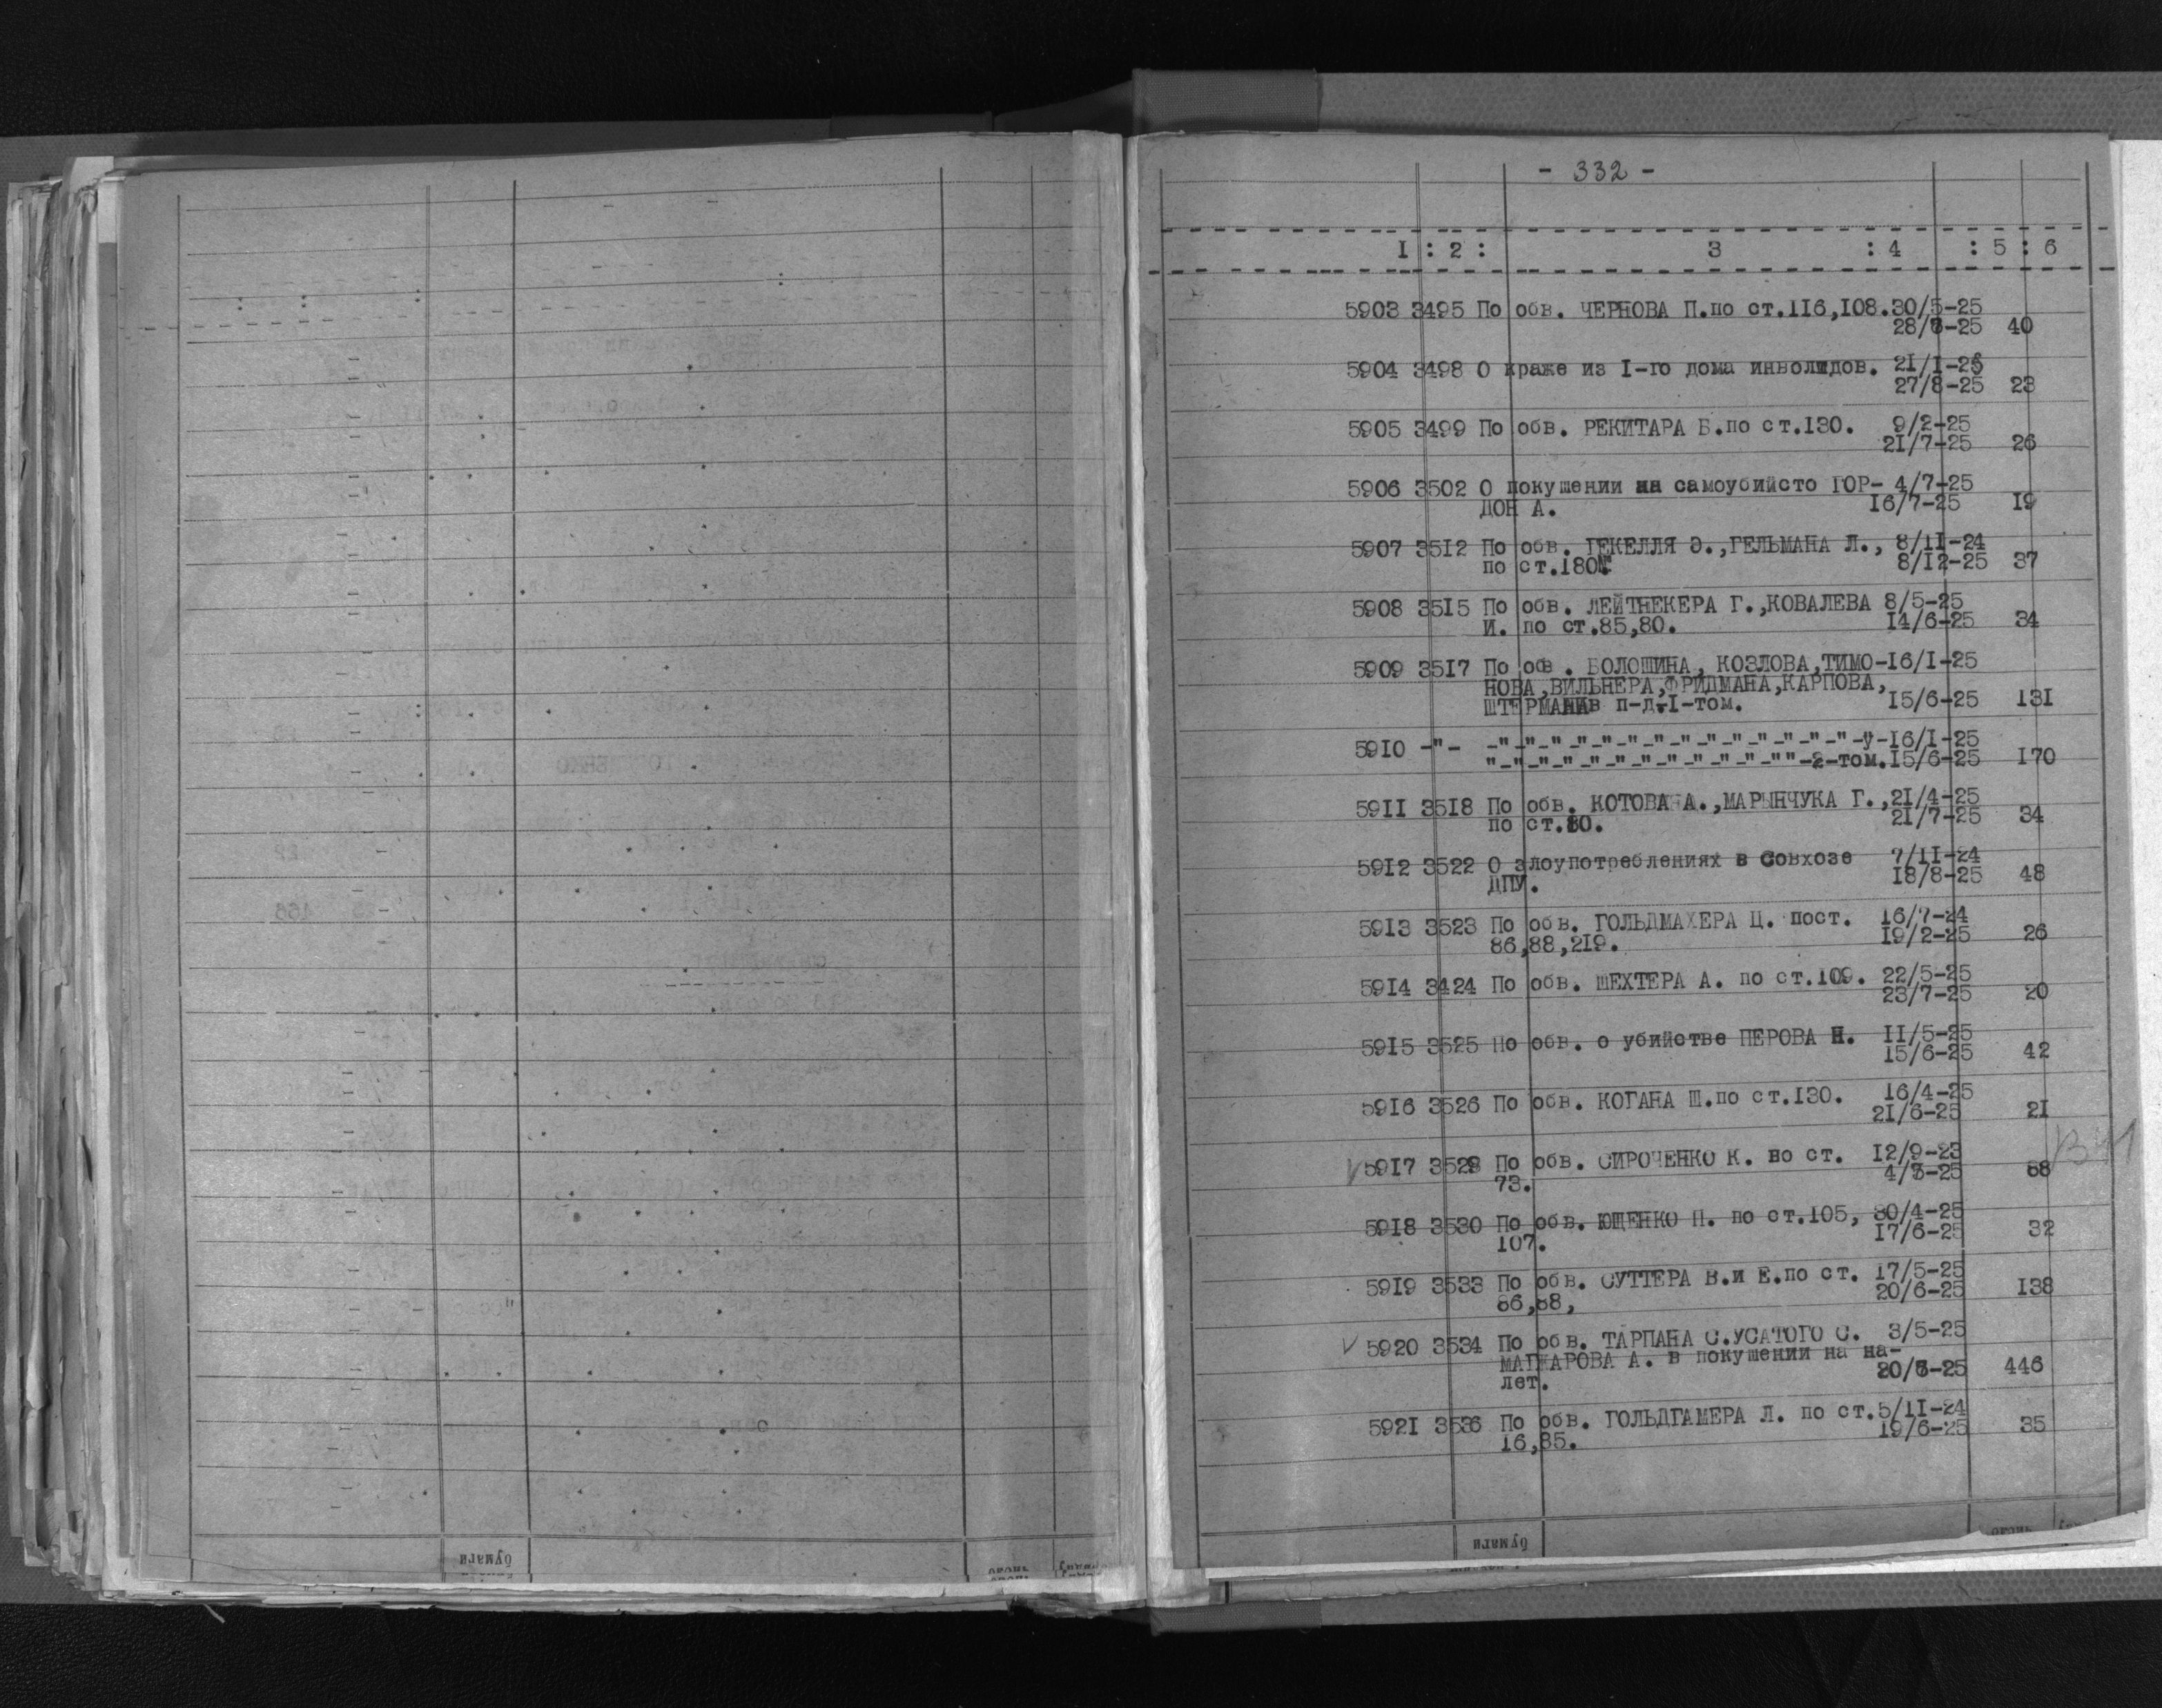 - 332 -
I : 2 : 3 : 4 : 5 : 6
5903 3495 По обв. ЧЕРНОВА П.по ст.116,108.30/5-25
28/8-25 40
5904 3498 О краже из I-го дома инволидов. 21/I-25
27/8-25 23
5905 3499 По обв. РЕКИТАРА Б.по ст.130. 9/2-25
21/7-25 26
5906 3502 О покушении на самоубийсто ГОР- 4/7-25
ДОН А. 16/7-25 19
5907 3512 По обв. ГЕКЕЛЛЯ Э.,ГЕЛЬМАНА Л., 8/11-24
по ст.180 8/12-25 37
5908 3515 По обв. ЛЕЙТНЕКЕРА Г.,КОВАЛЕВА 8/5-25
И. по ст.85,80. 14/6-25 34
5909 3517 По обв . ВОЛОШИНА, КОЗЛОВА,ТИМО-16/I-25
НОВА,ВИЛЬНЕРА,ФРИДМАНА,КАРПОВА,
ШТЕРМАНА в п-д.I-том. 15/6-25 131
5910 -"- -"-"-"-"-"-"-"-"-"-"-"-"-"-"-у-16/I-25
"-"-"-"-"-"-"-"-"-"-"-""-2-том.15/6-25 170
5911 3518 По обв. КОТОВА А.,МАРЫНЧУКА Г.,21/4-25
по ст.80. 21/7-25 34
5912 3522 О злоупотреблениях в Совхозе 7/11-24
ДПУ. 18/8-25 48
5913 3523 По обв. ГОЛЬДМАХЕРА Ц. пост. 16/7-24
86,88,219. 19/2-25 26
5914 3424 По обв. ШЕХТЕРА А. по ст.109. 22/5-25
23/7-25 20
5915 3525 По обв. о убийстве ПЕРОВА Н. 11/5-25
15/6-25 42
5916 3526 По обв. КОГАНА Ш.по ст.130. 16/4-25
21/6-25 21
√ 5917 3529 По обв. СИРОЧЕНКО К. по ст. 12/9-23
73. 4/3-25 68
5918 3530 По обв. ЮЩЕНКО П. по ст.105, 30/4-25
107. 17/6-25 32
5919 3533 По обв. СУТТЕРА В.и Е.по ст. 17/5-25
86,88, 20/6-25 138
√ 5920 3534 По обв. ТАРПАНА С.УСАТОГО С. 3/5-25
МАГЖАРОВА А. в покушении на на-
лет. 446
5921 3536 По обв. ГОЛЬДГАМЕРА Л. по ст.5/11-24
16,85. 19/6-25 35
бумаги
бумаги